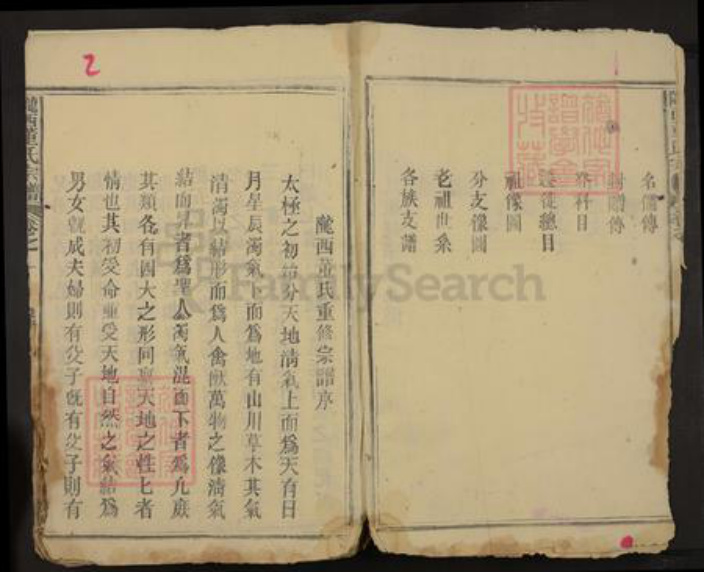 名儒傳
封贈傳
科目
遷徙總目
祖像圖
分支像圖
老祖世系
各族支譜
隴西董氏重修宗譜序
太極之初始分天地清氣上而爲天有日
月星辰濁氣下而爲地有山川草木其氣
清濁以結形而爲人禽獸萬物之像清氣
結而昇者爲聖人濁氣混而下者爲凡庶
其類各有四大之形同稟天地之性七者
情也其初受命重受天地自然之氣結爲
男女旣成夫婦則有父子旣有父子則有
隴西董氏宗譜 卷之一
2
FamilySearch